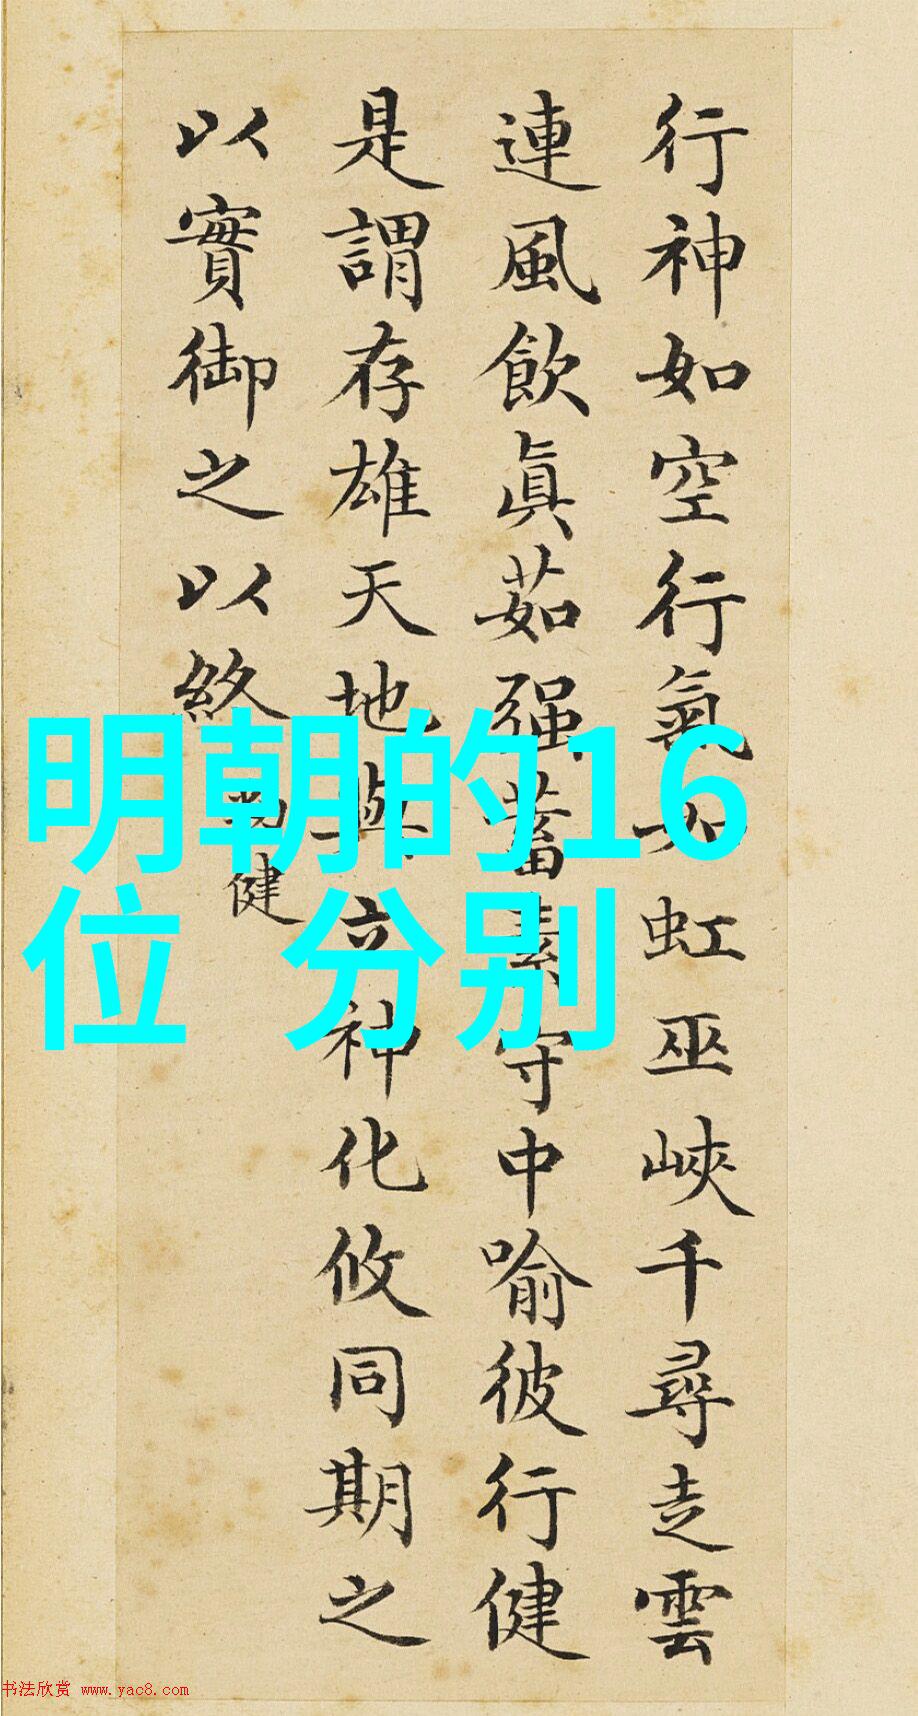 行神如空行氣如虹巫峽千尋走雲
連風飲眞茹强蓄素守中喻彼行健
是謂存雄天地與立神化攸同期之
以實御之以終
勁健
明朝的16
位 分别
书法欣赏 www.yac8.com